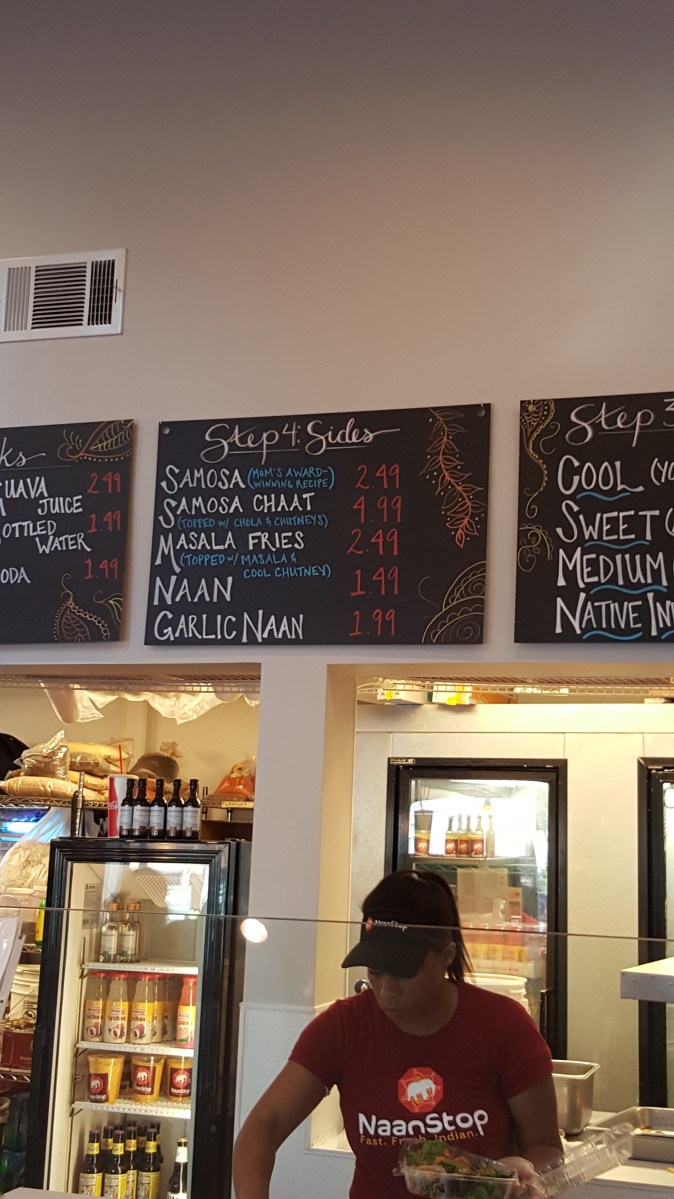 ks
GUAVA 2.49
JUICE
BOTTLED 1.49
WATER
SODA 1.49
Step 4: Sides
SAMOSA (MOM'S AWARD- 2.49
WINNING RECIPE)
SAMOSA CHAAT 4.99
(TOPPED W/ CHOLA & CHUTNEYS)
MASALA FRIES 2.49
(TOPPED W/ MASALA &
COOL CHUTNEY)
NAAN 1.49
GARLIC NAAN 1.99
Step 3
COOL (YO
SWEET (
MEDIUM
NATIVE IN
NaanStop
NaanStop
Fast. Fresh. Indian.